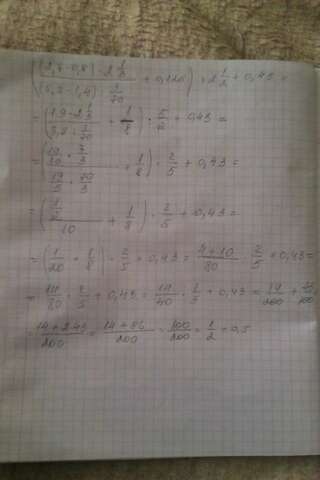 ((2,7-0,8)·2 1/3 / (5,2-1,4) : 3/70 + 0,125) : 2 1/2 + 0,43 =
= (1,9·2 1/3 / 3,8 : 3/70 + 1/8) · 5/2 + 0,43 =
= (19/10 · 7/3 / 19/5 · 70/3 + 1/8) · 2/5 + 0,43 =
= (1/2 / 10 + 1/8) · 2/5 + 0,43 =
= (1/20 + 1/8) · 2/5 + 0,43 = 4+10/80 · 2/5 + 0,43 =
= 14/80 · 2/5 + 0,43 = 19/40 · 2/5 + 0,43 = 19/200 + 43/100
14+2·43/200 = 14+86/200 = 100/200 = 1/2 = 0,5